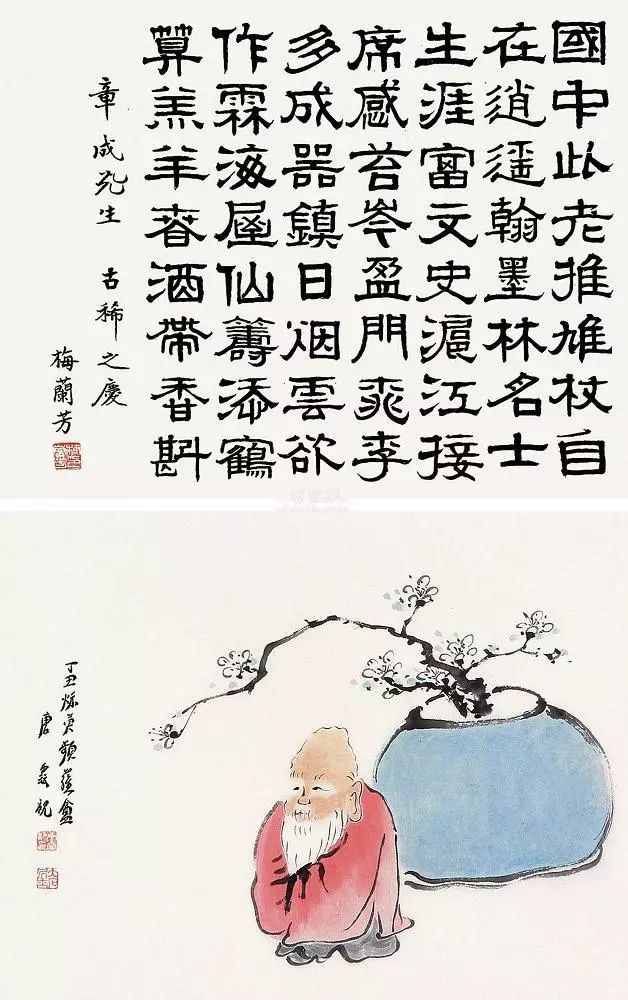 國中此老推鳩杖自
在逍遥翰墨林名士
生涯富文史滬江接
席感苔岑盈門桃李
多成器鎮日烟雲欲
作霖海屋仙籌添鶴
算羔羊春酒帶香斟
章成先生 古稀之慶
梅蘭芳
丁丑
唐 祝